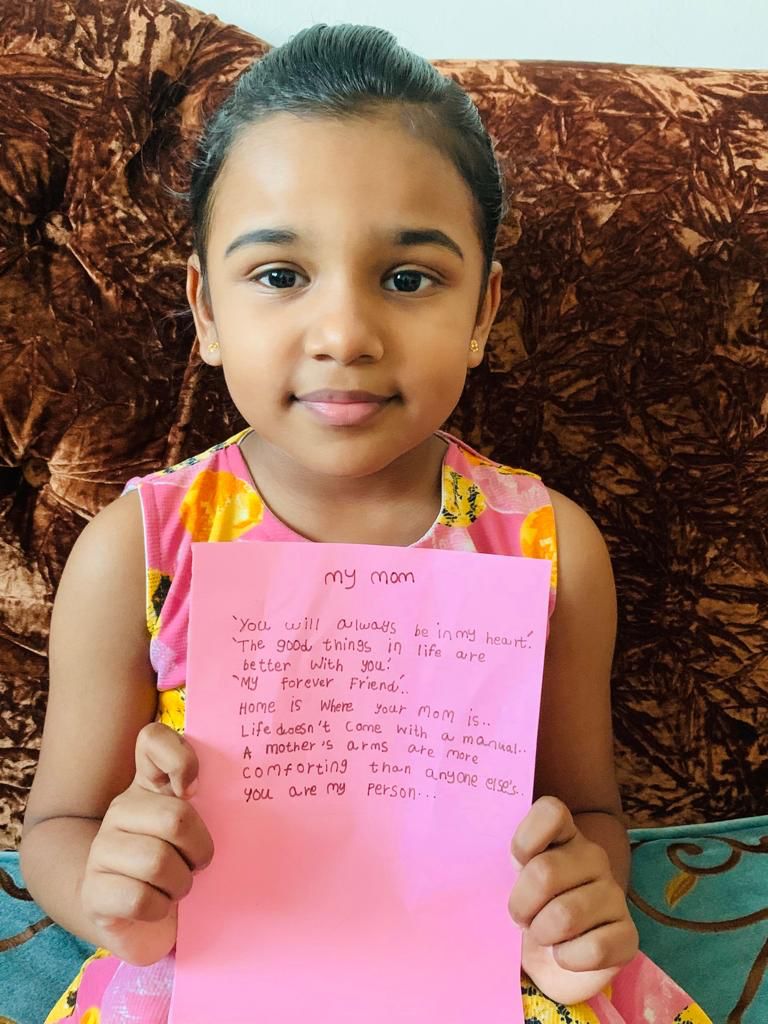 my mom
'You will always be in my heart'.
'The good things in life are
better with you'.
'My forever Friend'..
Home is where your mom is..
Life doesn't come with a manual..
A mother's arms are more
comforting than anyone else's..
you are my person...